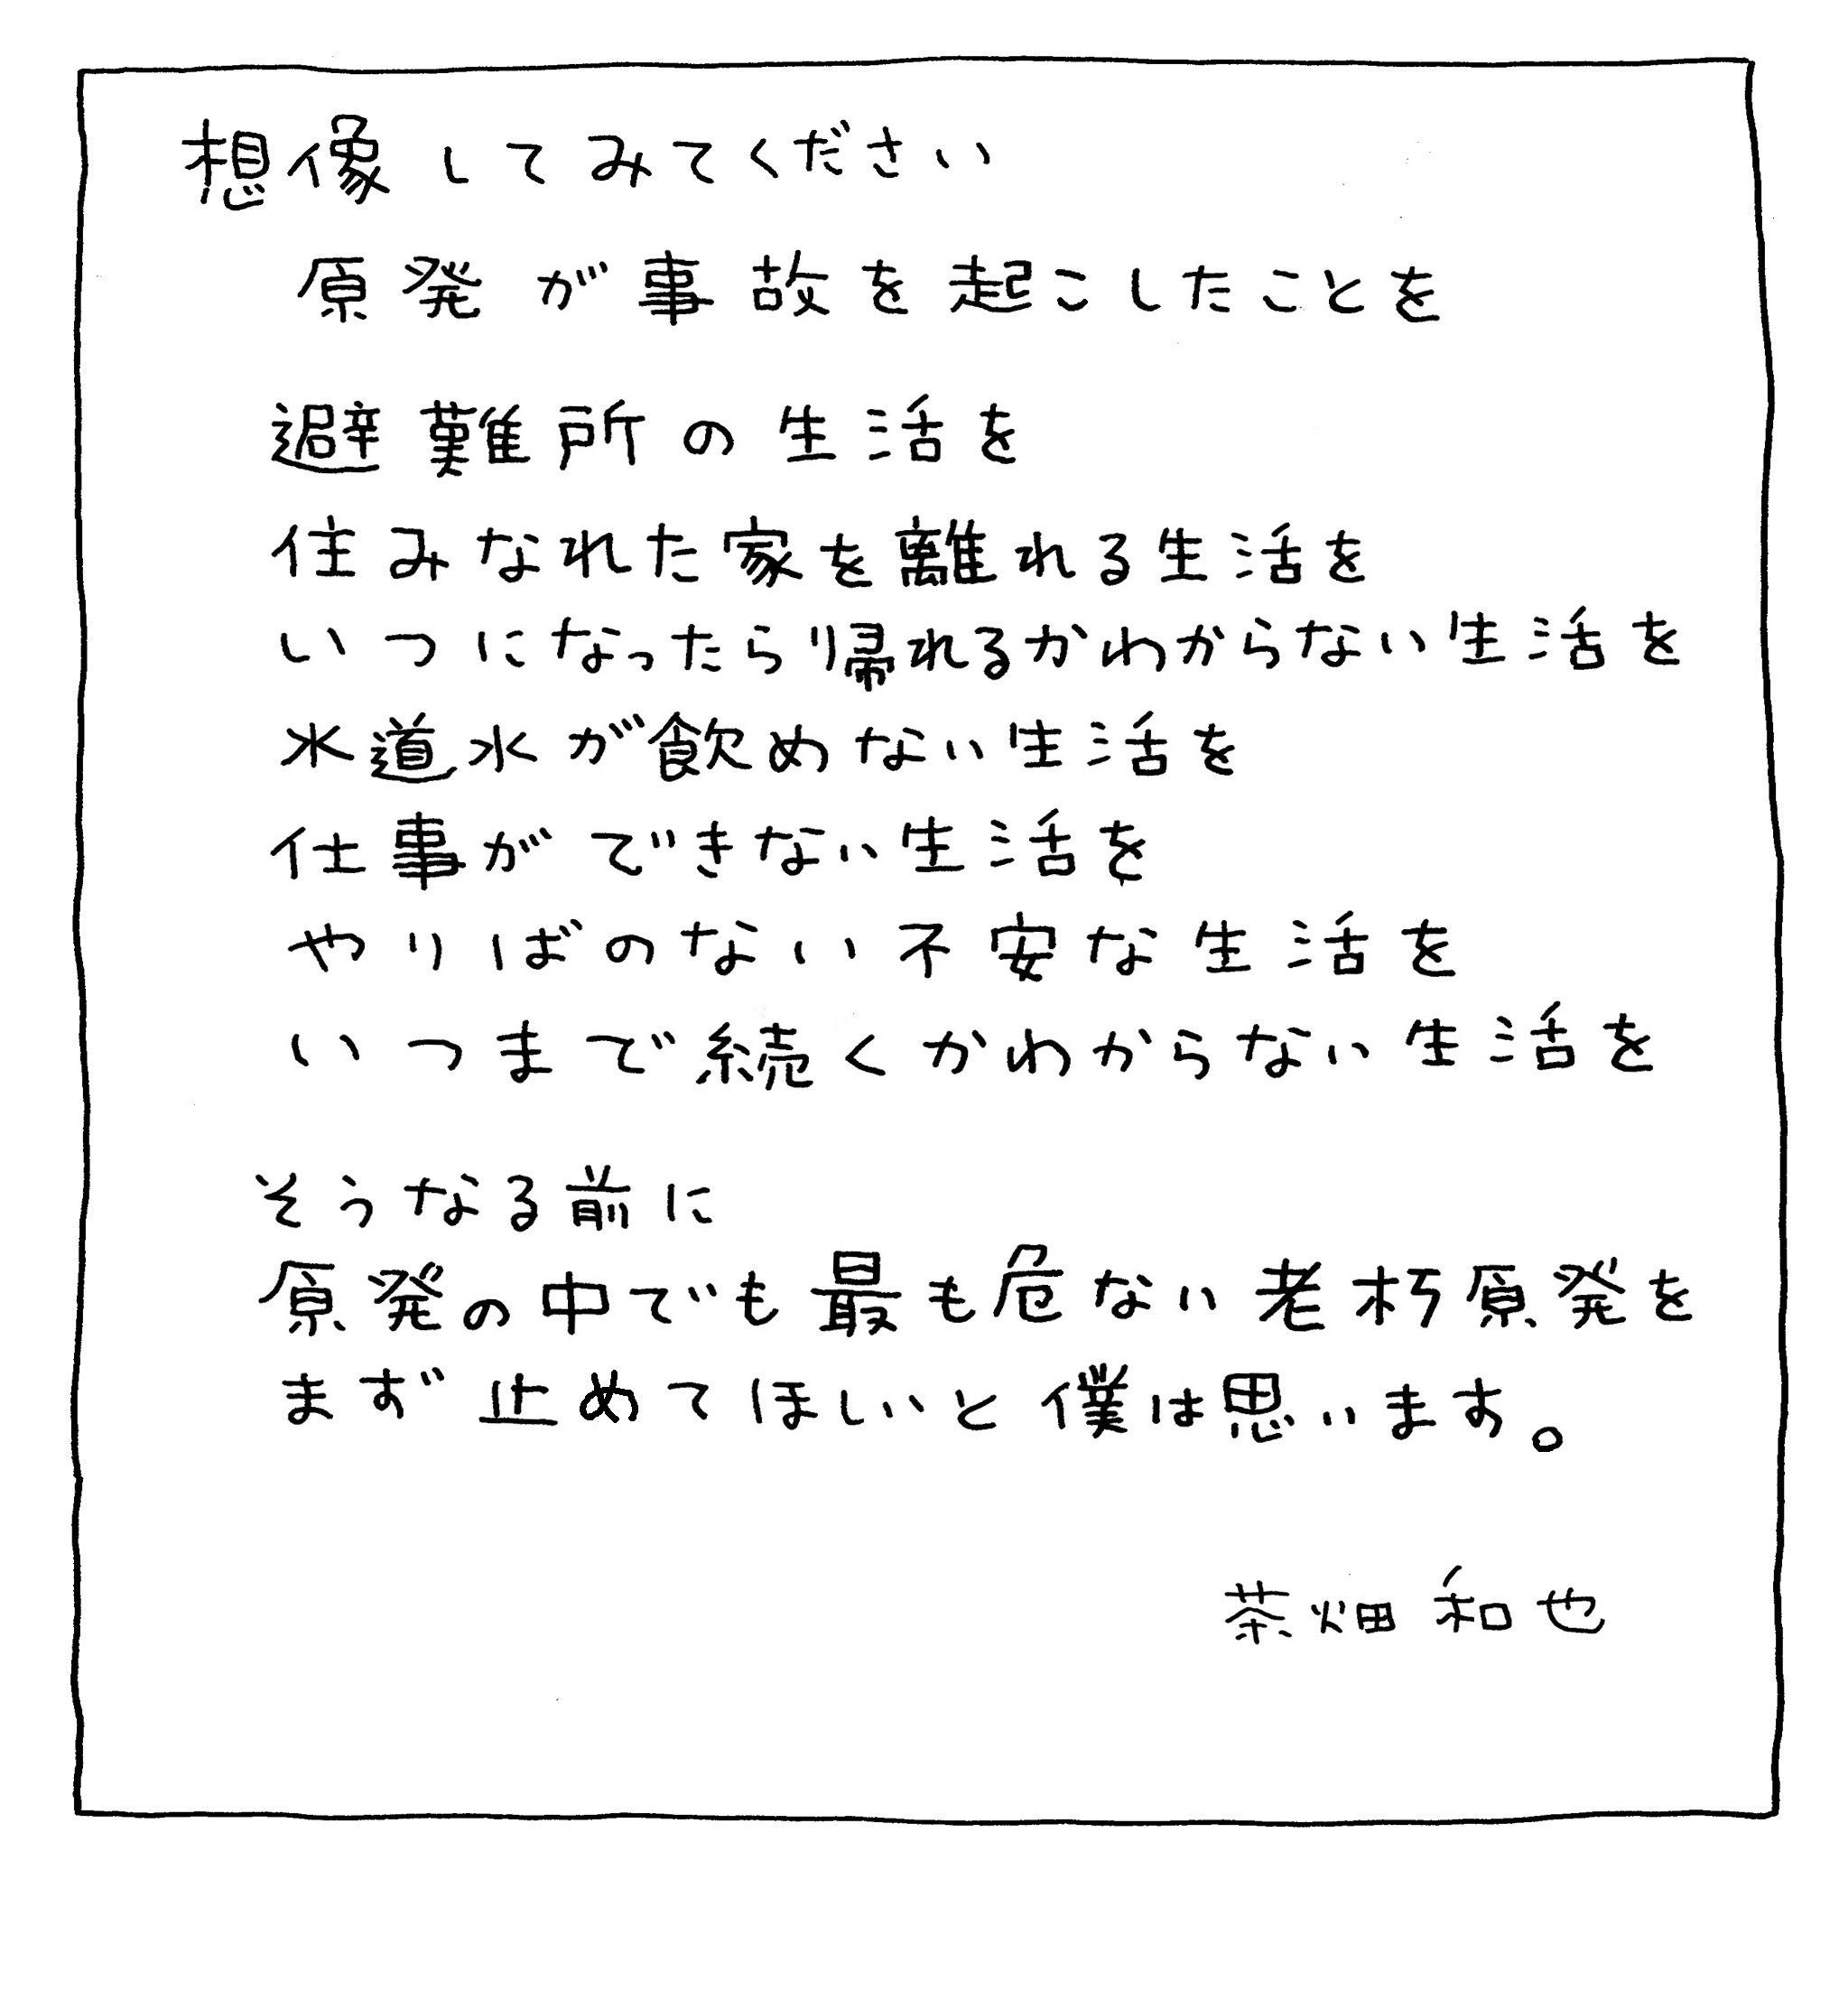 想像してみてください
原発が事故を起こしたことを
避難所の生活を
住みなれた家を離れる生活を
いつになったら帰れるかわからない生活を
水道水が飲めない生活を
仕事ができない生活を
やりばのない不安な生活を
いつまで続くかわからない生活を
そうなる前に
原発の中でも最も危ない老朽原発を
まず止めてほしいと僕は思います。
茶畑和也